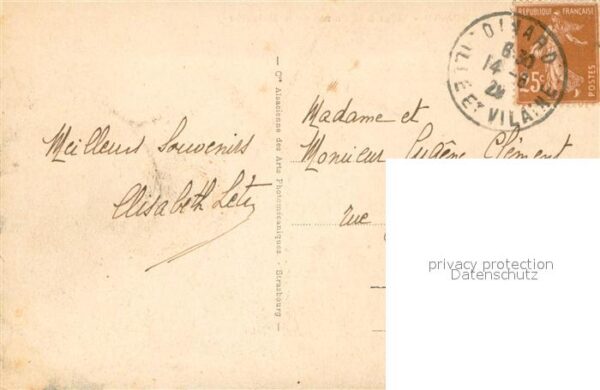 Meilleurs Souvenirs
Elisabeth
Cie Alsacienne des Arts Photomécaniques - Strasbourg -
DINARD
ILLE ET VILAINE
6 30
14 -8
RÉPUBLIQUE FRANÇAISE
25c
POSTES
Madame et
Monsieur Eugène Clément
rue
privacy protection
Datenschutz